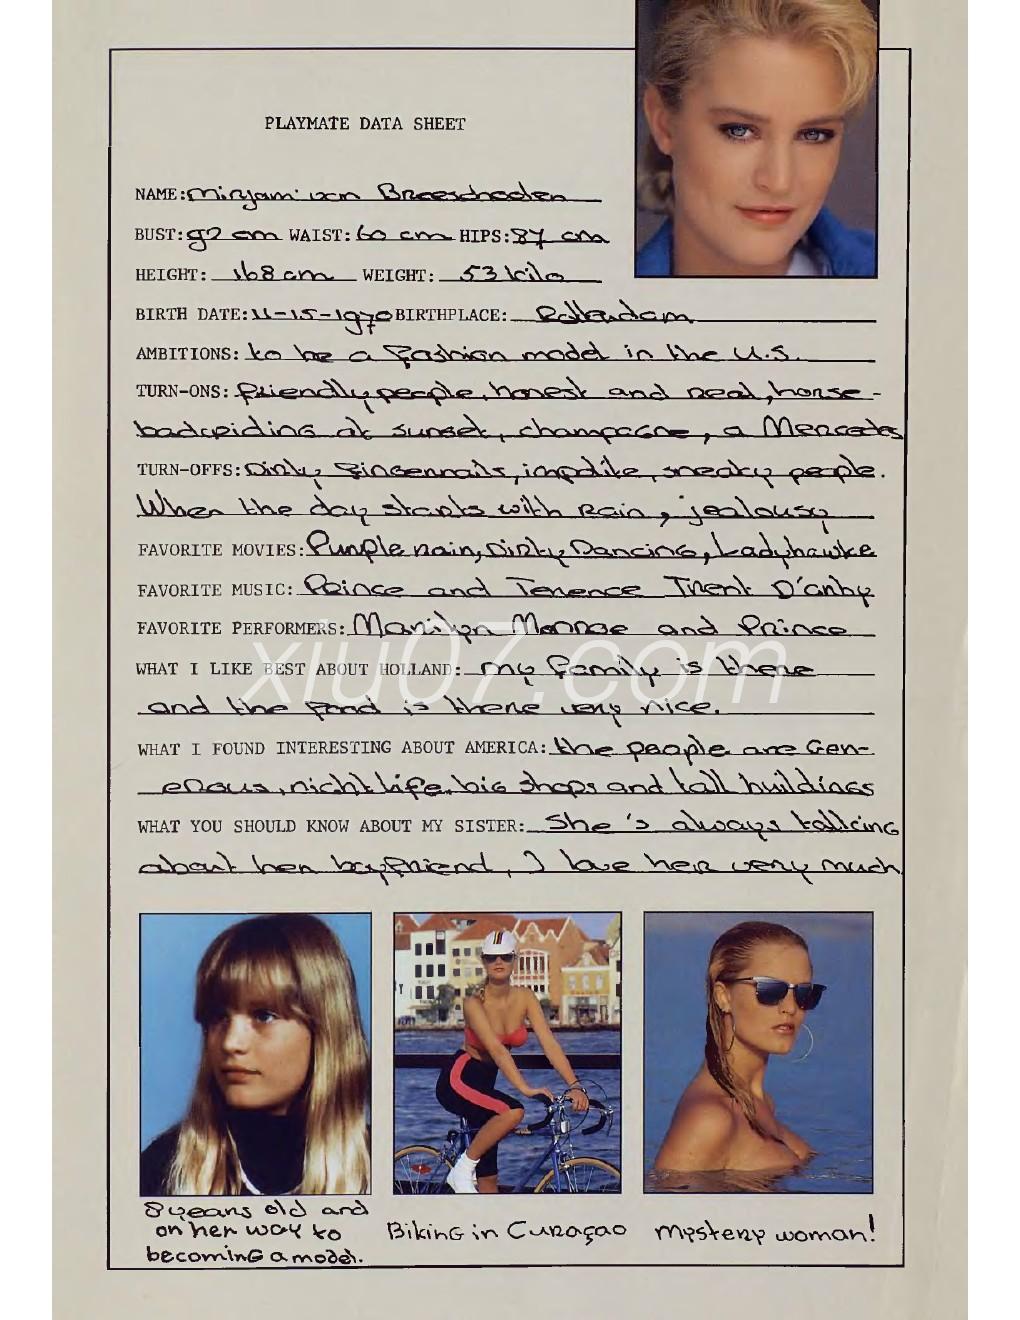 PLAYMATE DATA SHEET
NAME: Mirjam van Breeschooten
BUST: 92 cm WAIST: 60 cm HIPS: 87 cm
HEIGHT: 168 cm WEIGHT: 53 kilo
BIRTH DATE: 11-15-1970 BIRTHPLACE: Rotterdam
AMBITIONS: to be a fashion model in the U.S.
TURN-ONS: friendly people, honest and neat, horse-
backriding at sunset, champagne, a Mercedes
TURN-OFFS: Dirty fingernails, impolite, sneaky people.
When the day starts with rain, jealousy
FAVORITE MOVIES: Purple rain, Dirty Dancing, Ladyhawke
FAVORITE MUSIC: Prince and Terence Trent D'arby
FAVORITE PERFORMERS: Marilyn Monroe and Prince
WHAT I LIKE BEST ABOUT HOLLAND: my family is there
and the food is there very nice.
WHAT I FOUND INTERESTING ABOUT AMERICA: the people are Gen-
erous, nightlife, big shops and tall buildings
WHAT YOU SHOULD KNOW ABOUT MY SISTER: She's always talking
about her boyfriend, I love her very much
xiu07.com
8 years old and
on her way to
becoming a model.
Biking in Curaçao
mystery woman!